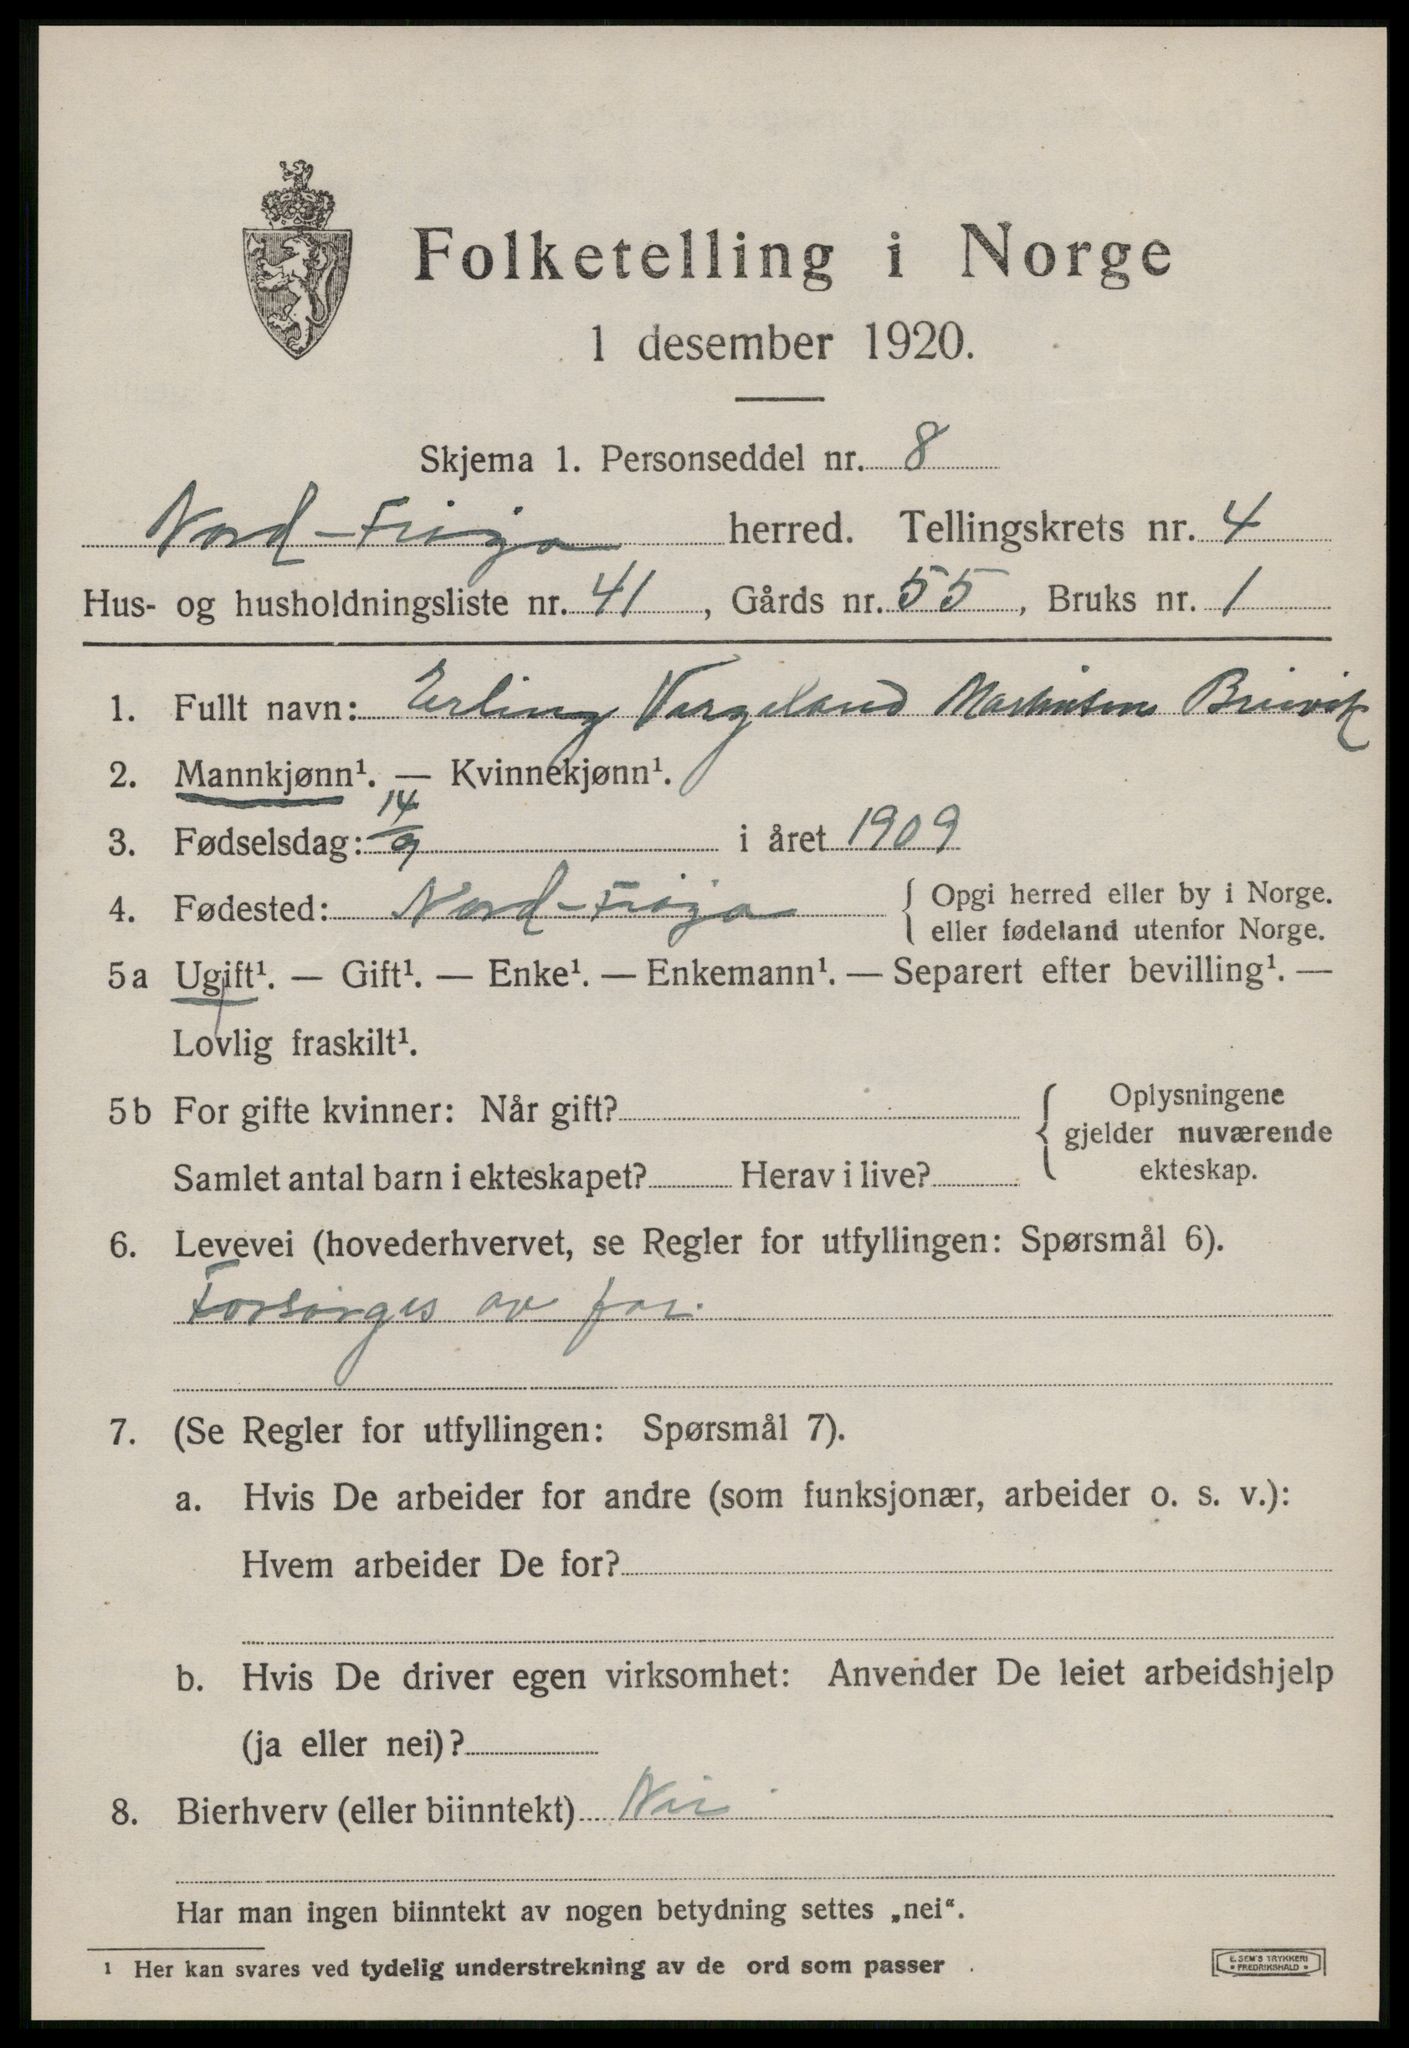 Folketelling i Norge
1 desember 1920.
Skjema 1. Personseddel nr. 8
Nord-Frøya herred. Tellingskrets nr. 4
Hus- og husholdningsliste nr. 41, Gårds nr. 55, Bruks nr. 1
1. Fullt navn: Erling Vargeland Martinsen Breivik
2. Mannkjønn¹. — Kvinnekjønn¹.
3. Fødselsdag: 14/9 i året 1909
4. Fødested: Nord-Frøya { Opgi herred eller by i Norge.
eller fødeland utenfor Norge.
5a Ugift¹. — Gift¹. — Enke¹. — Enkemann¹. — Separert efter bevilling¹. —
Lovlig fraskilt¹.
5b For gifte kvinner: Når gift? { Oplysningene
gjelder nuværende
Samlet antal barn i ekteskapet? Herav i live? ekteskap.
6. Levevei (hovederhvervet, se Regler for utfyllingen: Spørsmål 6).
Forsørges av far.
7. (Se Regler for utfyllingen: Spørsmål 7).
a. Hvis De arbeider for andre (som funksjonær, arbeider o. s. v.):
Hvem arbeider De for?
b. Hvis De driver egen virksomhet: Anvender De leiet arbeidshjelp
(ja eller nei)?
8. Bierhverv (eller biinntekt) Nei
Har man ingen biinntekt av nogen betydning settes „nei“.
¹ Her kan svares ved tydelig understrekning av de ord som passer.
E. SEM'S TRYKKERI
FREDRIKSHALD